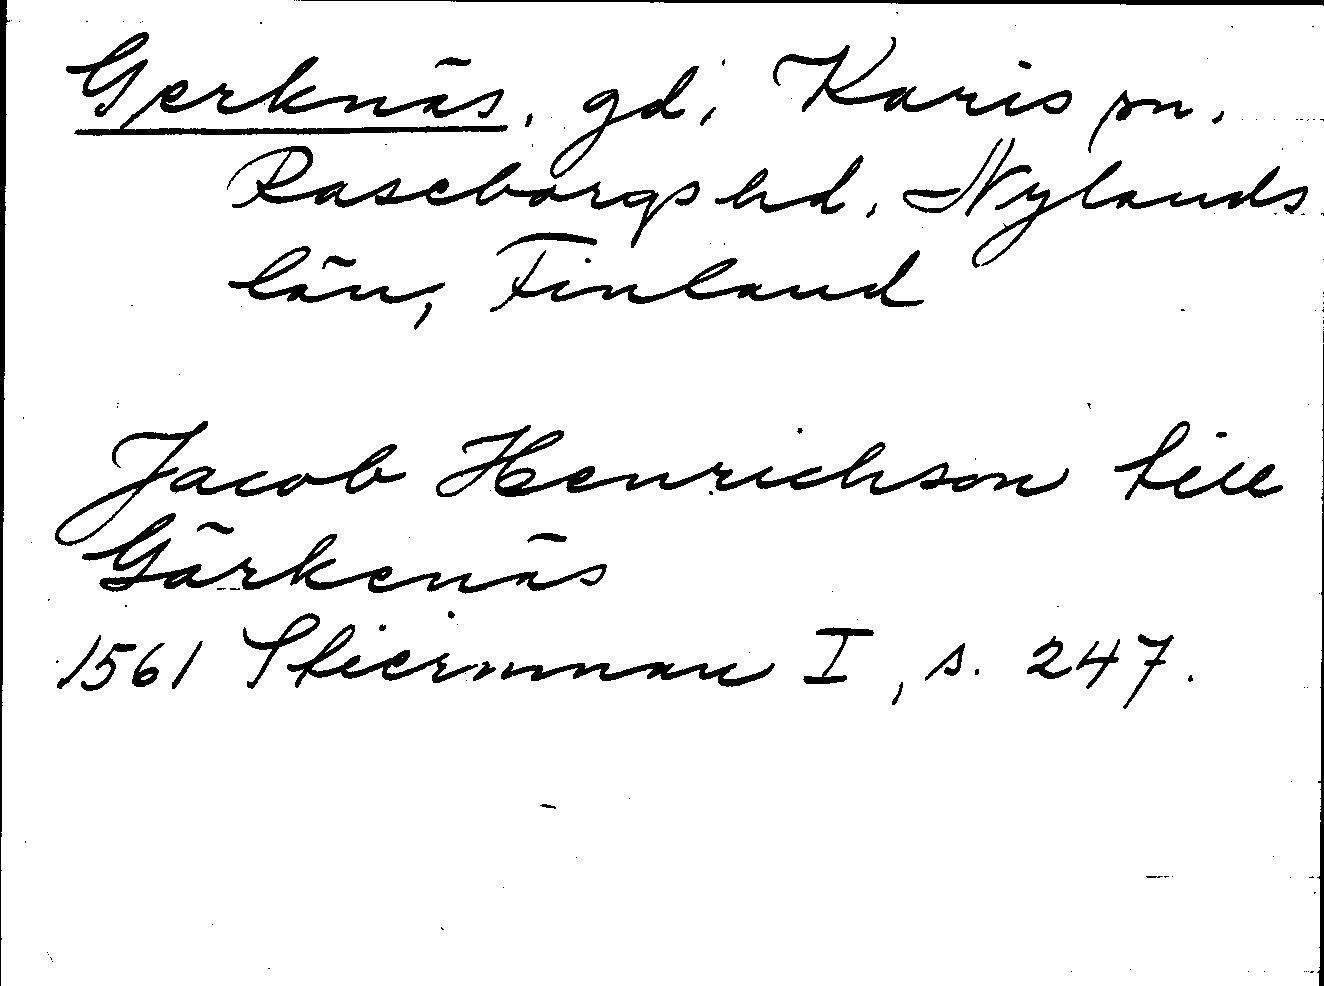 Gerknäs, gd, Karis sn.
Raseborgs hd, Nylands
län, Finland
Jacob Henrichson till
Gärkenäs
1561 Stiernman I, s. 247.